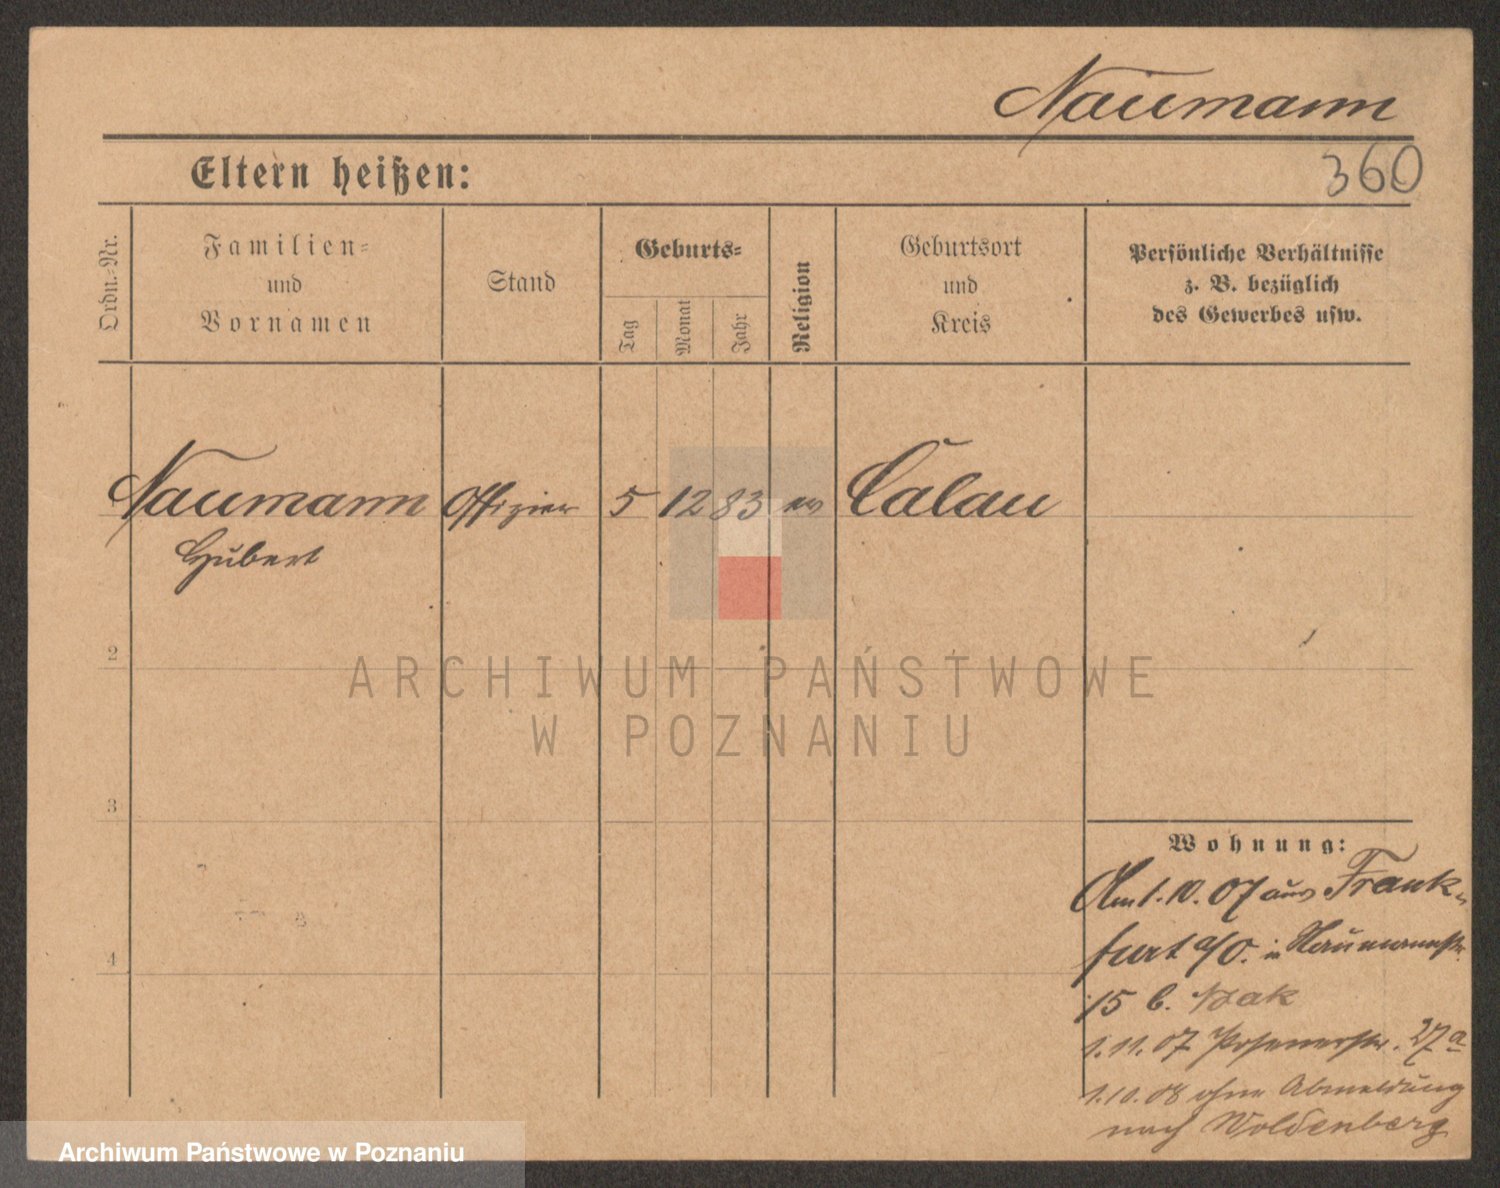 Naumann
360
Eltern heißen:
Ordn.-Nr.
Familien-
und
Vornamen
Stand
Geburts-
Tag
Monat
Jahr
Religion
Geburtsort
und
Kreis
Persönliche Verhältnisse
z. B. bezüglich
des Gewerbes usw.
Naumann Offizier 5 12 83 ev Calau
Hubert
2
3
4
Wohnung:
Am 1.10.07 aus Frank-
furt a/O. in Naumannstr.
15 b.
1.11.07 Posenerstr. 27a
1.10.08 ohne Abmeldung
nach Woldenberg
ARCHIWUM PAŃSTWOWE
W POZNANIU
Archiwum Państwowe w Poznaniu